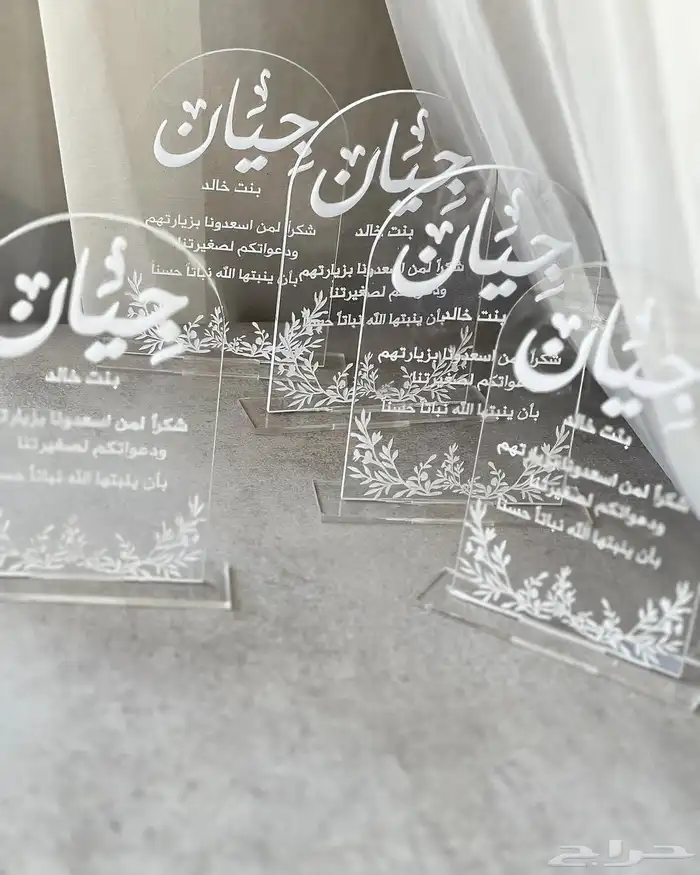 جِيَان
بنت خالد
شكراً لمن اسعدونا بزيارتهم
ودعواتكم لصغيرتنا
بأن ينبتها الله نباتاً حسناً
جِيَان
بنت خالد
شكراً لمن اسعدونا بزيارتهم
ودعواتكم لصغيرتنا
بأن ينبتها الله نباتاً حسناً
جِيَان
بنت خالد
شكراً لمن اسعدونا بزيارتهم
ودعواتكم لصغيرتنا
بأن ينبتها الله نباتاً حسناً
جِيَان
بنت خالد
شكراً لمن اسعدونا بزيارتهم
ودعواتكم لصغيرتنا
بأن ينبتها الله نباتاً حسناً
جِيَان
بنت خالد
شكراً لمن اسعدونا بزيارتهم
ودعواتكم لصغيرتنا
بأن ينبتها الله نباتاً حسناً
حراج